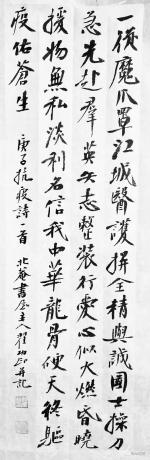 一役魔爪罩江城醫護拼全精與誠國士操刀
急先赴羣英矢志整裝行愛心似火燃昏曉
援物無私淡利名信我中華龍骨硬天終驅
疫佑蒼生
庚子抗疫詩一首 北菴書屋主人翟 并記